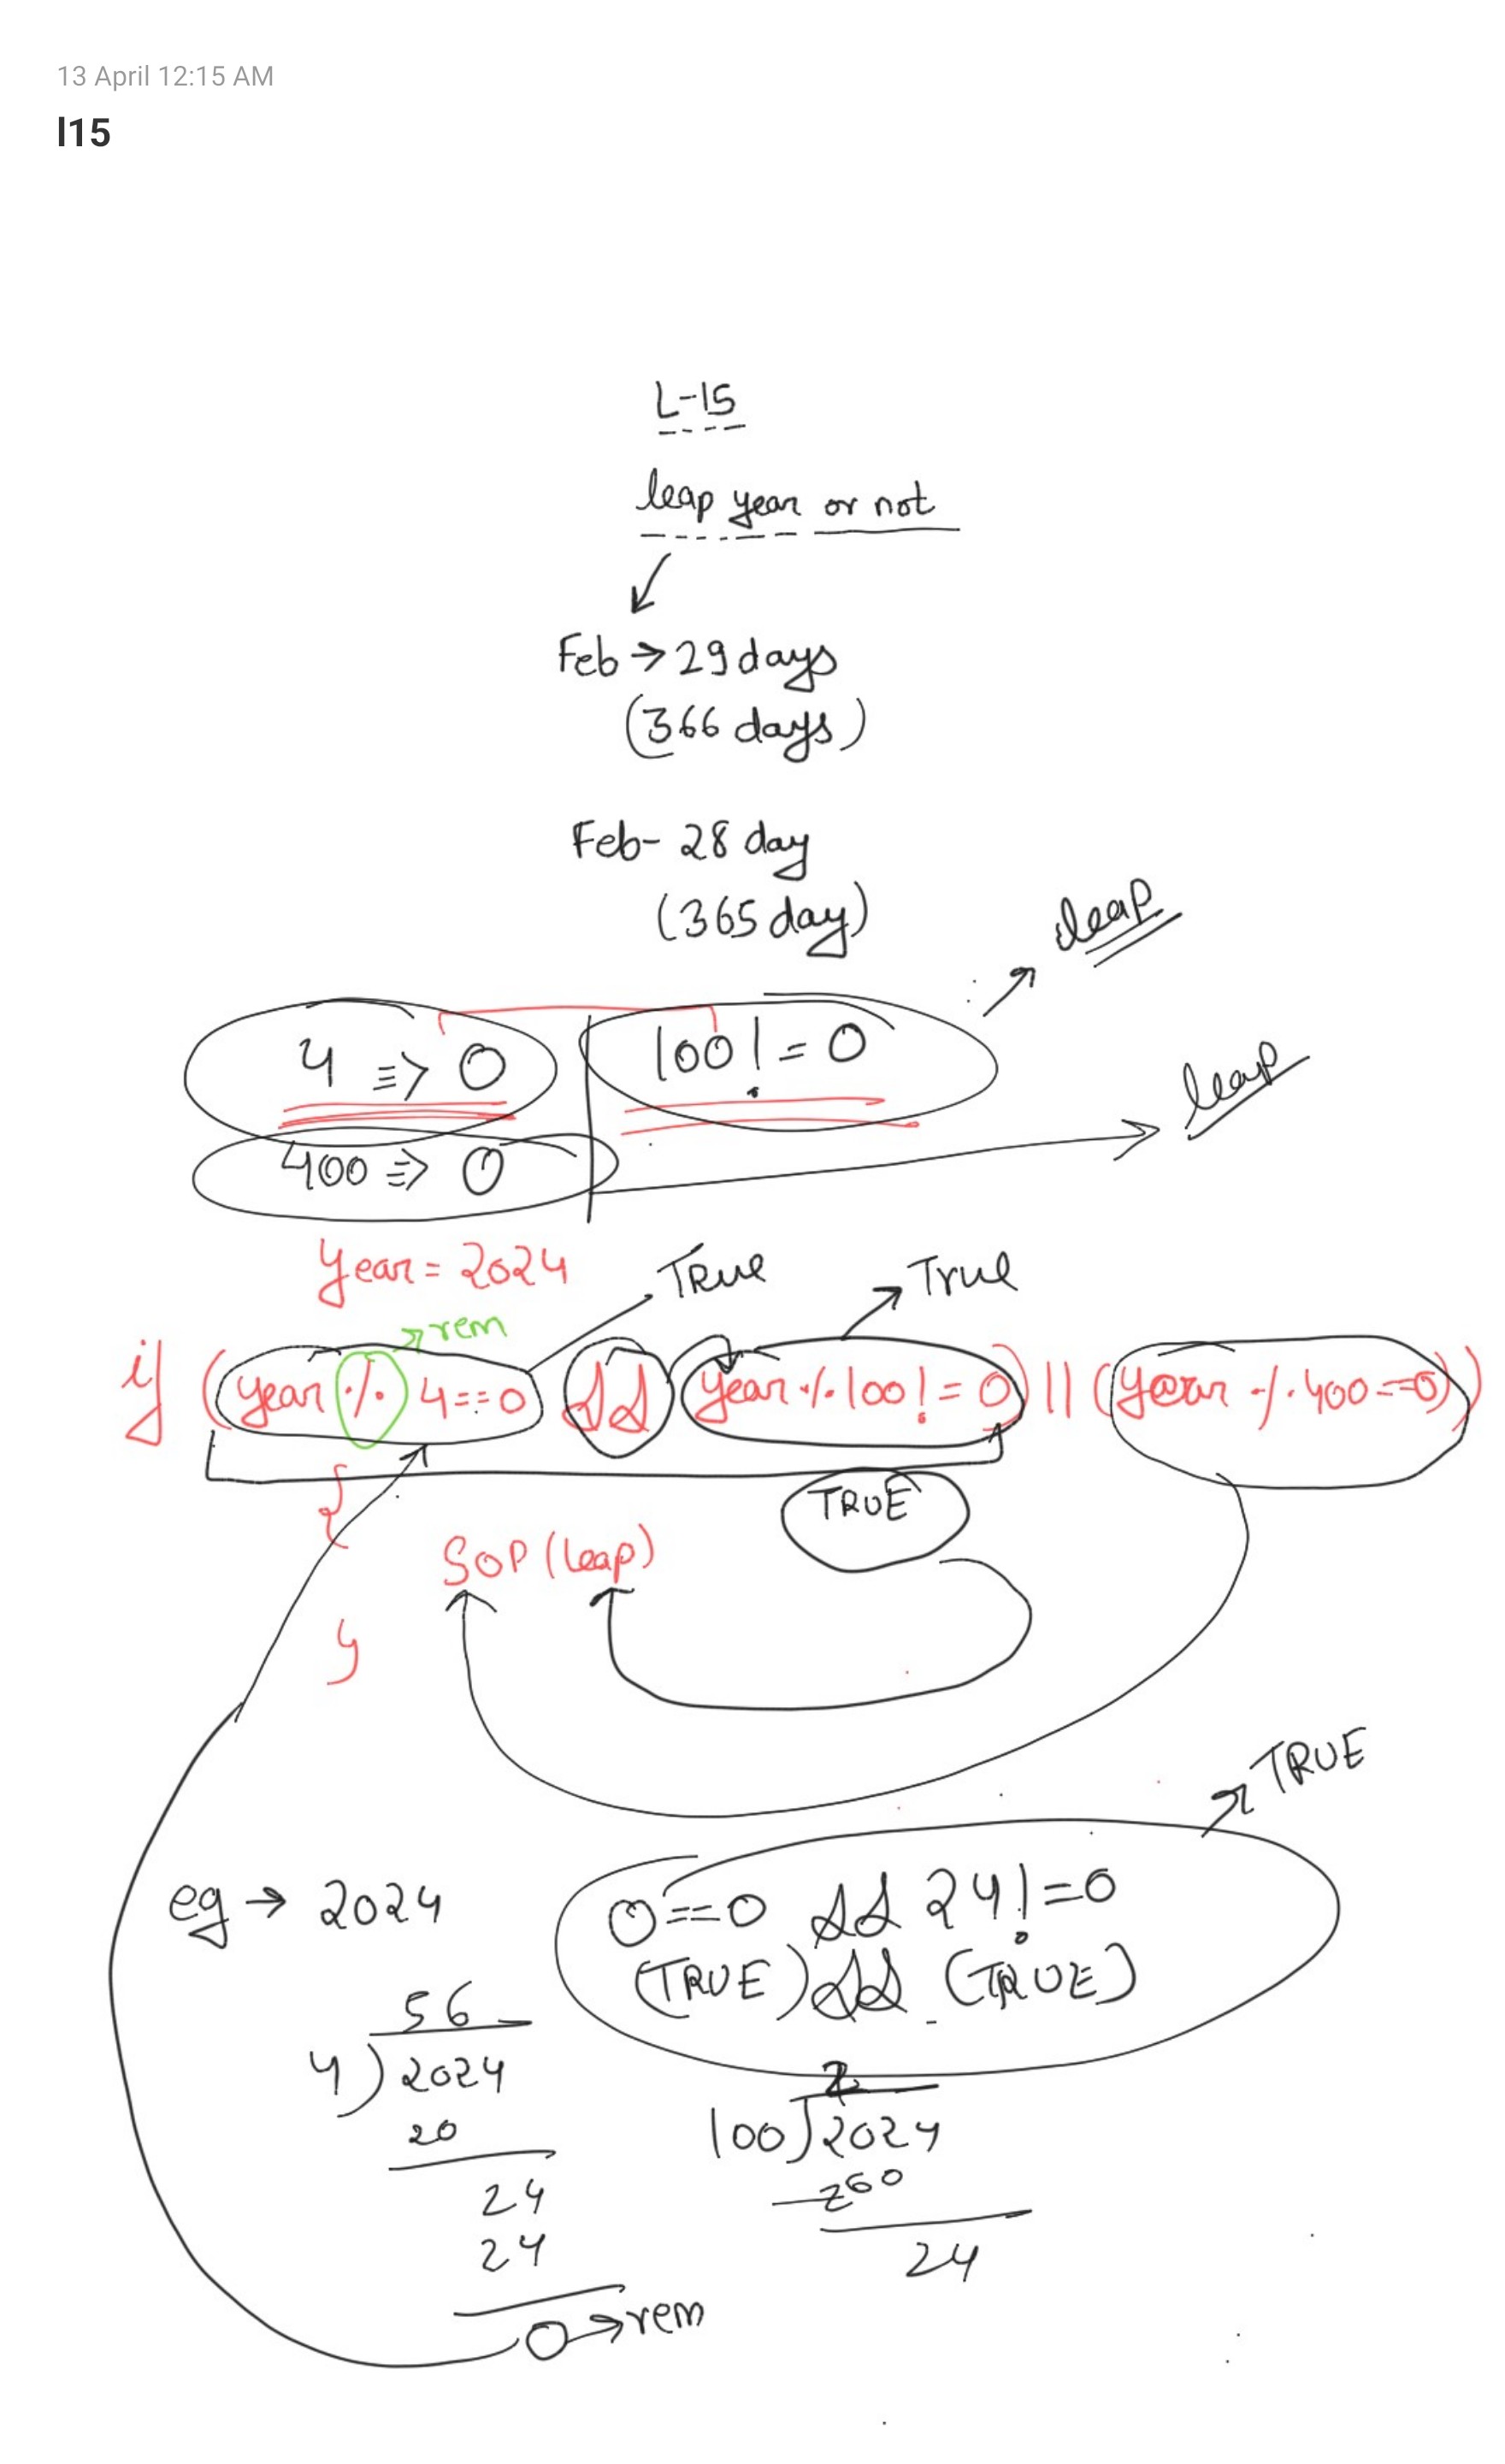 13 April 12:15 AM
l15
L-15
leap year or not
Feb → 29 days
(366 days)
Feb- 28 day
(365 day)
leap
4 => 0 100 != 0
leap
400 => 0
year = 2024 True True
rem
if (year % 4==0 && year % 100 != 0) || (year % 400==0))
{
TRUE
SOP (leap)
}
TRUE
eg → 2024 0==0 && 24!=0
(TRUE) && (TRUE)
56
4)2024 2
20 100)2024
24 200
24 24
0 → rem